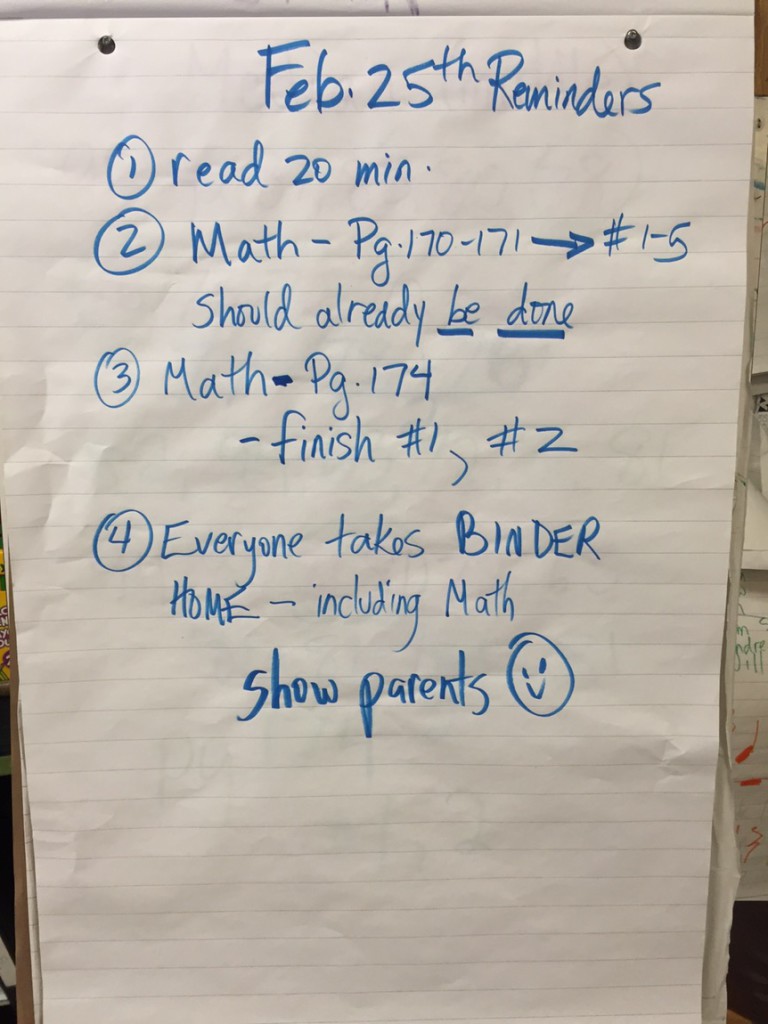 Feb. 25th Reminders
① read 20 min.
② Math - Pg. 170-171 → #1-5
should already be done
③ Math - Pg. 174
- finish #1, #2
④ Everyone takes BINDER
HOME - including Math
show parents ☺